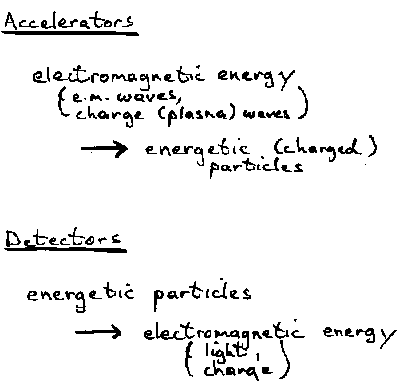 Accelerators
electromagnetic energy
(e.m. waves,
charge (plasma) waves)
→ energetic (charged)
particles
Detectors
energetic particles
→ electromagnetic energy
(light,
charge)